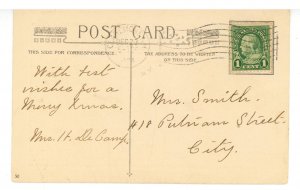 POST CARD
THIS SIDE FOR CORRESPONDENCE.
THE ADDRESS TO BE WRITTEN
ON THIS SIDE.
1 CENT 1
With best
wishes for a
Merry Xmas.
Mrs. H. DeCamp.
Mrs. Smith.
418 Putnam Street.
City.